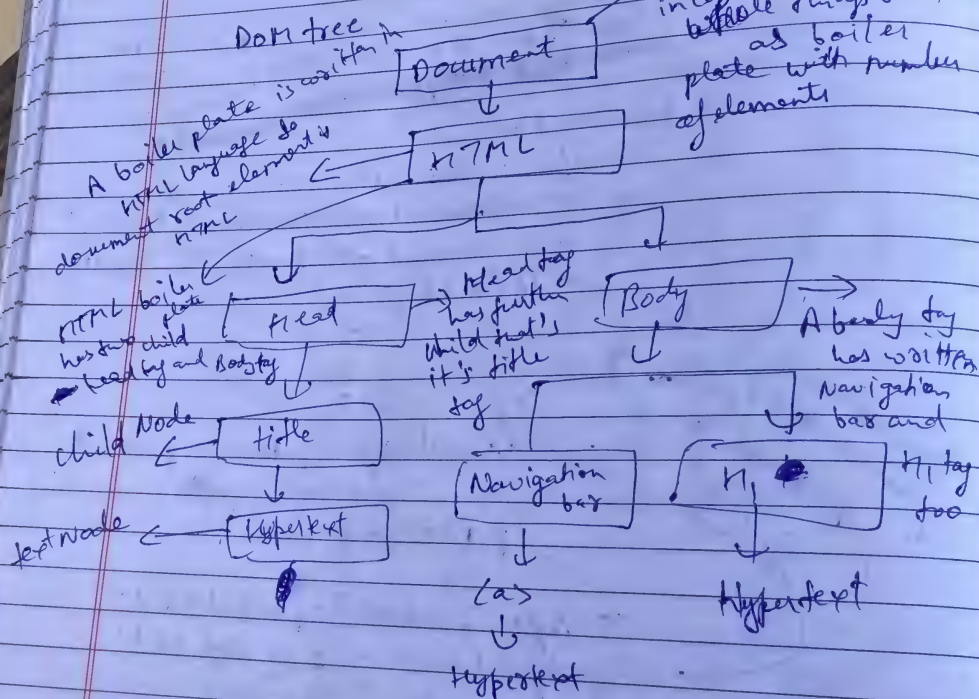 DOM tree
Document
whole things
as boiler
plate with number
of elements
A boiler plate is written in
HTML language so
document root element is
HTML
HTML
HTML boiler
plate
has two child
head tag and Body tag
Head
Head tag
has further
child that's
it's title
tag
Body
A body tag
has written
Navigation
bar and
H1 tag
too
child Node
title
Navigation
bar
H1
text Node
Hypertext
<a>
Hypertext
Hypertext